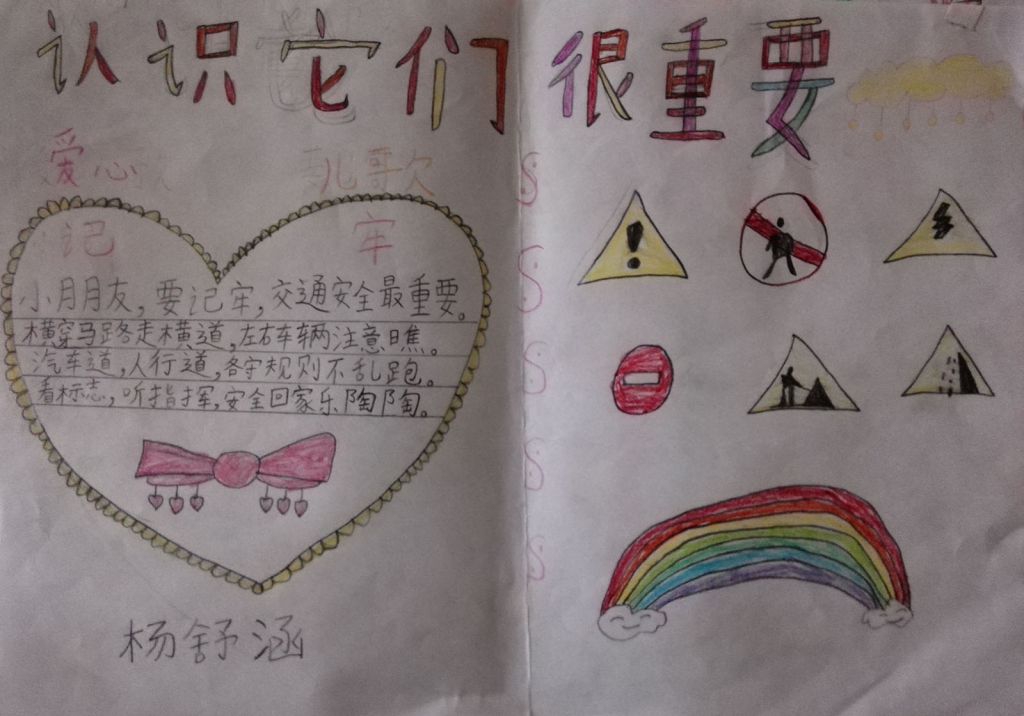 认识它们很重要
爱心 儿歌
记 牢
小朋友，要记牢，交通安全最重要。
横穿马路走横道，左右车辆注意瞧。
汽车道，人行道，各守规则不乱跑。
看标志，听指挥，安全回家乐陶陶。
杨舒涵